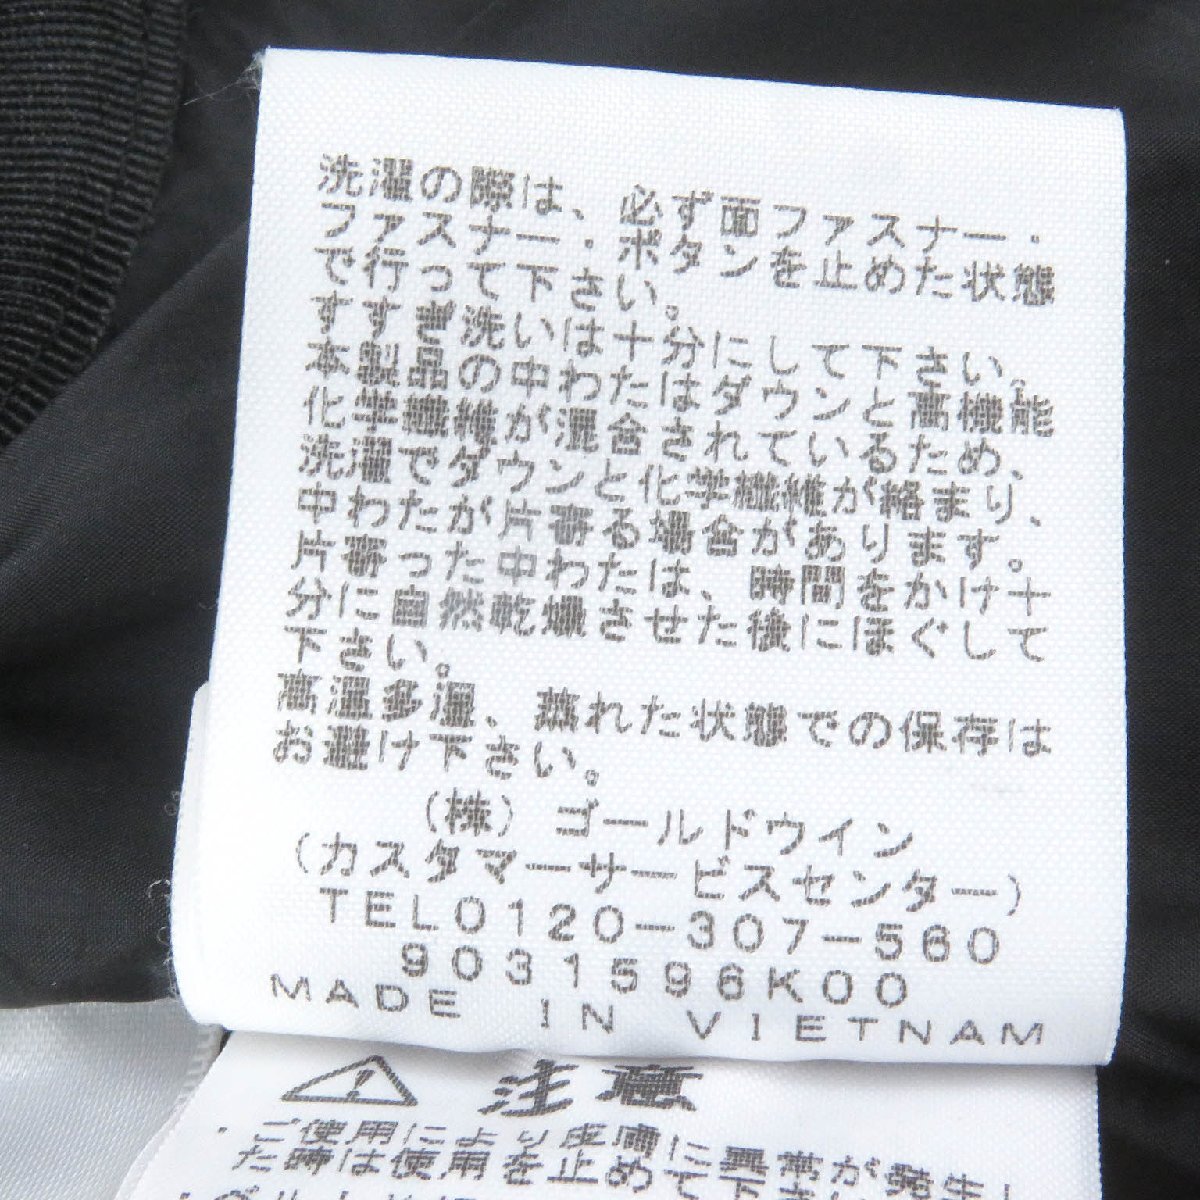 洗濯の際は、必ず面ファスナー・
ファスナー・ボタンを止めた状態
で行って下さい。
すすぎ洗いは十分にして下さい。
本製品の中わたはダウンと高機能
化学繊維が混合されているため、
洗濯でダウンと化学繊維が絡まり、
中わたが片寄る場合があります。
片寄った中わたは、時間をかけ十
分に自然乾燥させた後にほぐして
下さい。
高温多湿、蒸れた状態での保存は
お避け下さい。
(株)ゴールドウイン
(カスタマーサービスセンター)
TEL0120-307-560
9031596K00
MADE IN VIETNAM
注意
・ご使用により皮膚に異常が発生し
た時は使用を止めて下さい